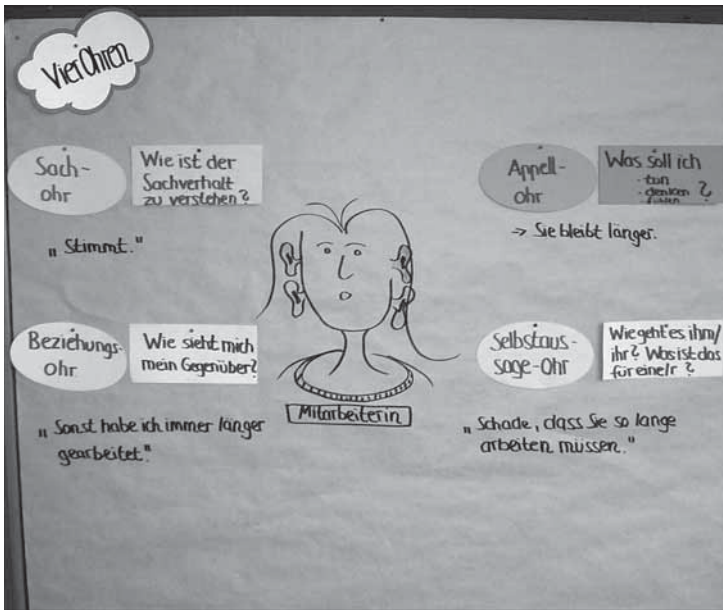 Vier Ohren
Sach-
ohr
Wie ist der
Sachverhalt
zu verstehen?
"Stimmt."
Appell-
ohr
Was soll ich
- tun
- denken ?
- fühlen
→ Sie bleibt länger.
Beziehungs-
ohr
Wie sieht mich
mein Gegenüber?
"Sonst habe ich immer länger
gearbeitet."
Mitarbeiterin
Selbstaus-
sage-Ohr
Wie geht es ihm/
ihr? Was ist das
für eine/r ?
"Schade, dass Sie so lange
arbeiten müssen."